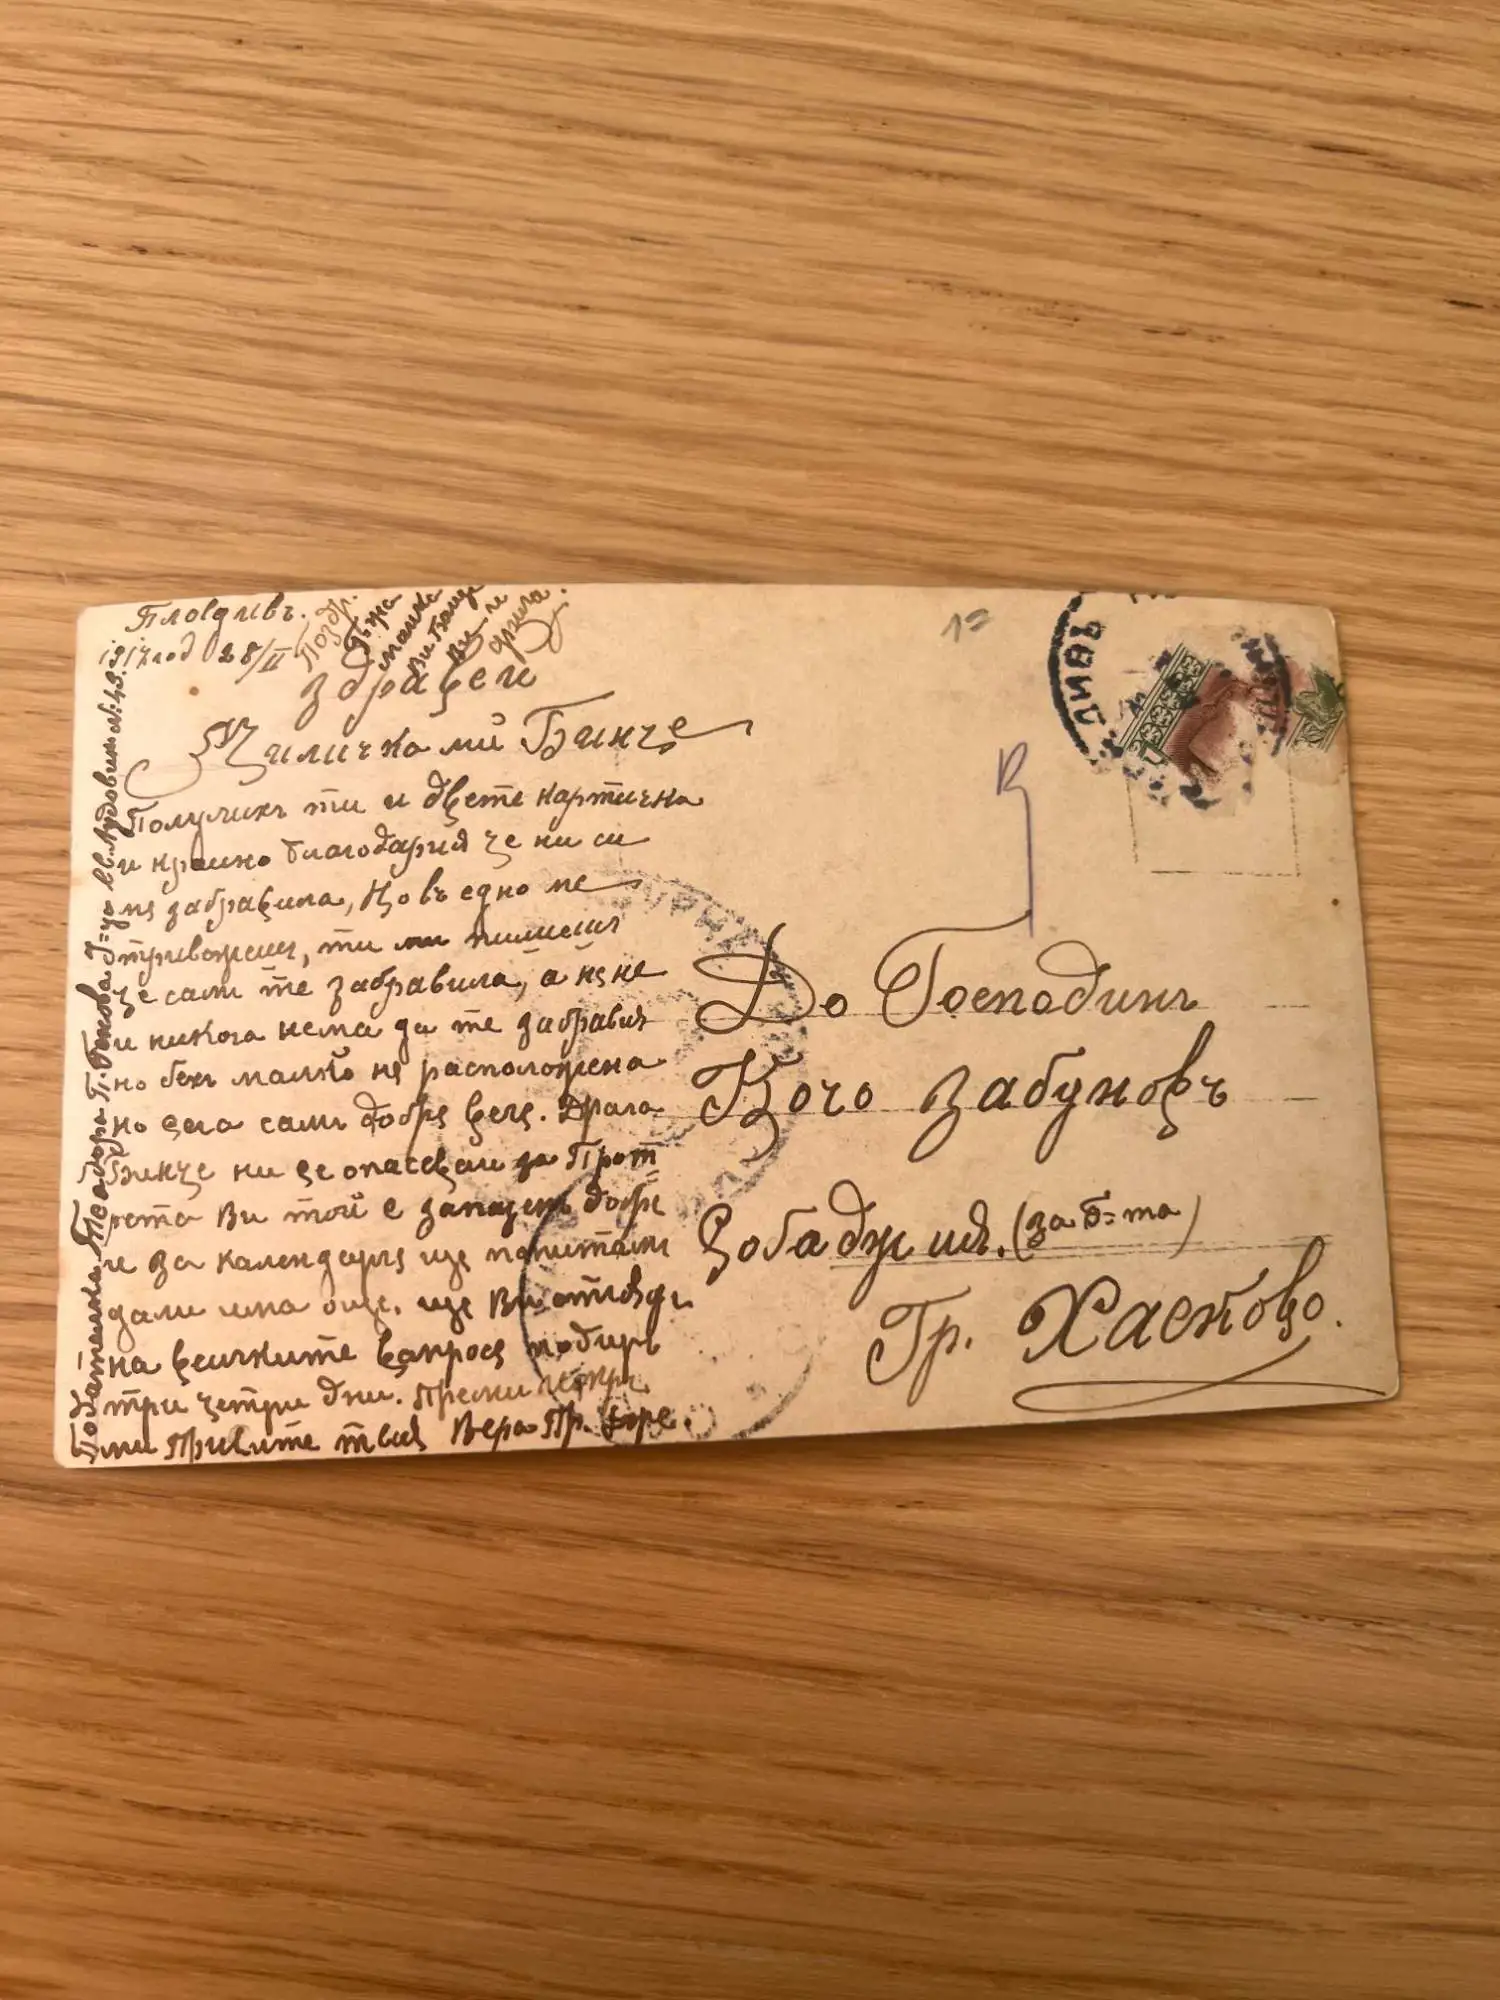 Пловдивъ.
1917 год 28/II
Поздр.
майка
Ви
и
здравей
Миличка ми Бинче
Получихъ ти и двете картичка
и крайно благодария че ни си
ме забравила, Що въ едно ме
тревожиш, ти ми пишешъ
че съмъ те забравила, а не не
и никога нема да те забравиѫ
но бехъ малко не расположена
но сега съмъ добре вече. Драга
Бинче ни се опасевай за Порт
рета Ви той е запазенъ добре
и за календаря ще попитамъ
дали има още. ще Ви отведж.
на всичките въпроси подиръ
три четри дни. Преми искре
ми привите твоя Вера Пр.
Подателка: Теодора П. Генкова У=ца Св. Лудовик № 43.
ЛИВЪ
До Господинъ
Кочо Забуновъ
Абаджия. (за Б=та)
Гр. Хасково.